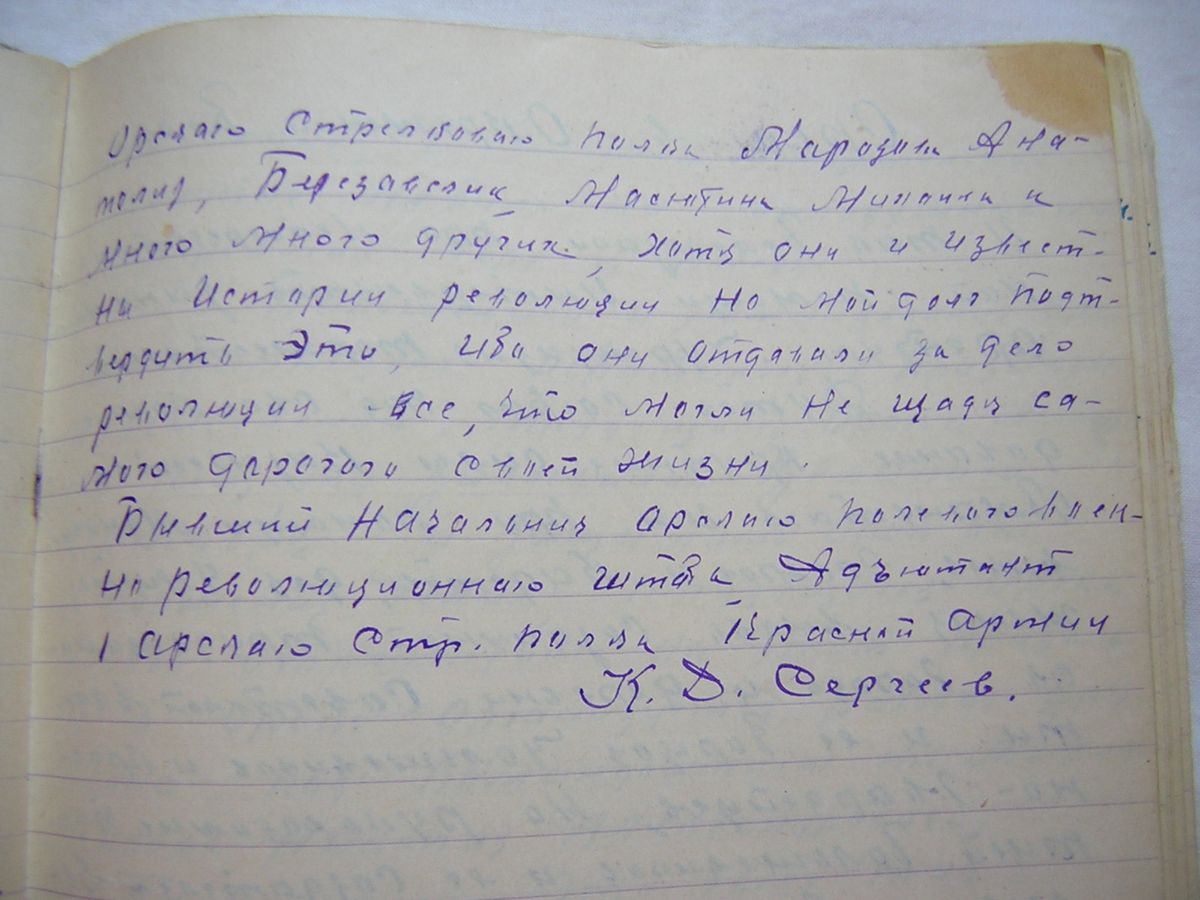 Орскаго Стрелковаго полка Марозова Ана-
толия, Березавских Масютина Михаила и
много много других, хотя они и извест-
ны Истории революции но мой долг подт-
вердить Это, ибо они отдавали за дело
революции все, что могли не щадя са-
мого дорогого своей жизни.
Бывший Начальник орскаго полевого воен-
но революционнаго штаба Адъютант
1 орскаго Стр. полка Красной армии
К. Д. Сергеев.